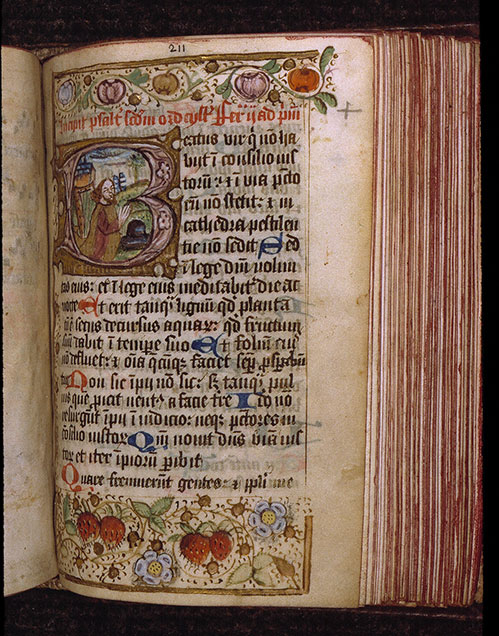 211
Incipit psalt' scdm ordi cyst' Fer' ij ad prm
Beatus vir q' nō ha
buit ī consilio iuſ
torum: ⁊ ī via pcto
rū nō stetit: ⁊ in
cathedra pestilen
tie nō sedit Sed
ī lege dm̄ volun
tas eius: et ī lege eius meditabit' die ac
nocte Et erit tanq̄ lignum qd' planta
tū ē secus decursus aquar': qd' fructum
suū dabit ī tempe suo Et folium eiꝰ
nō defluet: ⁊ oīa q̄cūq; faciet semp psperabun
tur Non sic īpij nō sic: s; tanq̄ pul
uis quē proicit uent' a facie t're Ido nō
resurgūt īpij ī iudicio: neq; pctores in
cōsilio iustor' Qm̄ nouit dūs viam iuſ
tor' et iter īpiorū pibit
Quare fremuerūt gentes: ⁊ ppli me